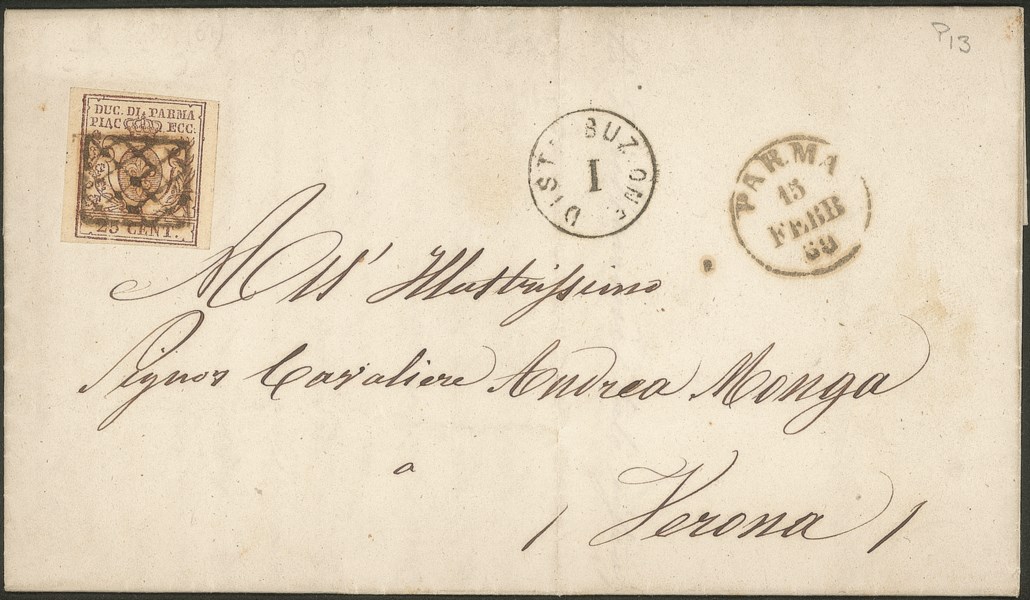 P13
DUC. DI PARMA
PIAC ECC.
25 CENT.
DISTRIBUZIONE
I
PARMA
13
FEBB
59
All' Illustrissimo
Signor Cavaliere Andrea Monga
a
Verona